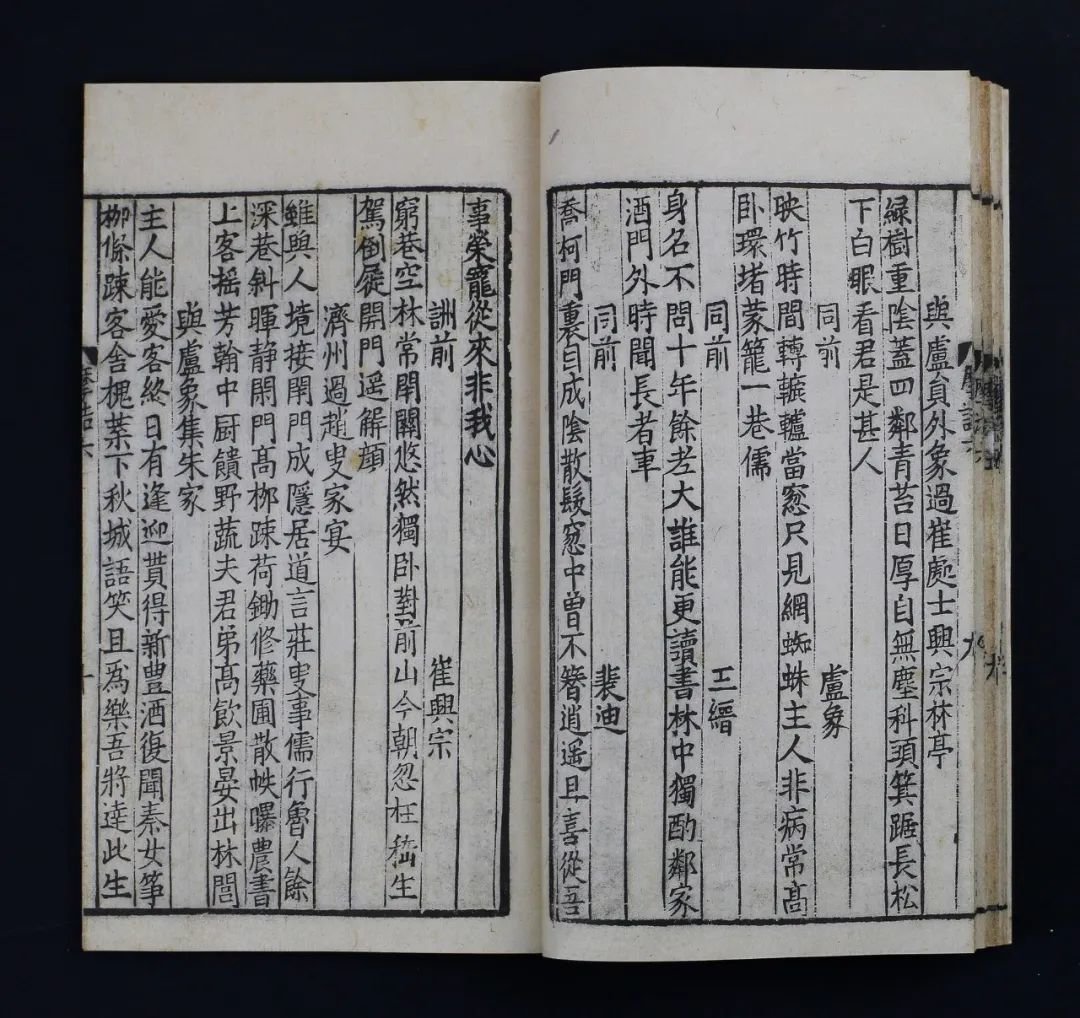 與盧員外象過崔處士興宗林亭
綠樹重陰蓋四鄰青苔日厚自無塵科頭箕踞長松
下白眼看君是甚人
同前 盧象
映竹時聞轉轆轤當窓只見網蜘蛛主人非病常髙
卧環堵蒙籠一巷儒
同前 王縉
身名不問十年餘老大誰能更讀書林中獨酌鄰家
酒門外時聞長者車
同前 裴迪
喬柯門裏自成陰散髮窓中曾不簪逍遥且喜從吾
事榮寵從來非我心
詶前 崔興宗
窮巷空林常閉關悠然獨卧對前山今朝忽枉嵇生
駕倒屣開門遥解顔
濟州過趙叟家宴
雖與人境接閉門成隱居道言莊叟事儒行魯人餘
深巷斜暉静閑門髙栁踈荷鋤修藥圃散帙曝農書
上客摇芳翰中厨饋野蔬夫君弟髙飲景晏出林閭
與盧象集朱家
主人能愛客終日有逢迎貰得新豐酒復聞秦女筝
栁條踈客舍槐葉下秋城語笑且爲樂吾將達此生